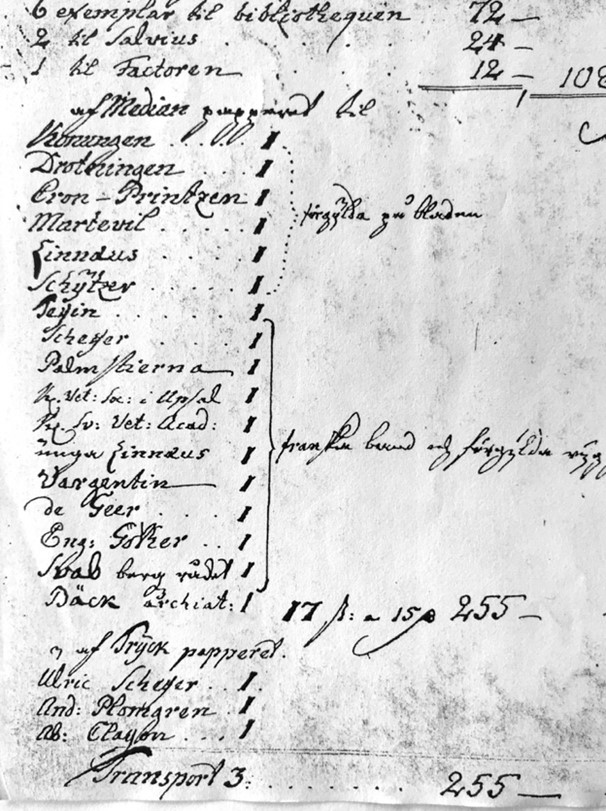 6 exemplar til bibliothequen . 72 —
2 til Salvius . . . . . 24 —
1 til Factoren . . . 12 — 108
af Median papperet til
Konungen . . . . 1
Drotningen . . . 1
Cron-Printzen 1
Martevil . . . . 1
Linnæus . . . . 1
Schÿtzer . . . . 1
förgÿlda på bladen
Tessin . . . . . . 1
Scheffer . . . . . 1
Palmstierna 1
K. Vet: Soc: i Upsal 1
K. Sv: Vet: Acad: 1
unga Linnæus 1
Vargentin 1
de Geer . . . . 1
Eng: Göther . . 1
Svab berg rådet 1
franska band och förgÿlda
Bäck archiat: 1 17 st: a 15 255 —
af Trÿck papperet.
Ulric Scheffer . . 1.
And: Plomgren . 1
Ab: Clason . . . 1
Transport 3: . . . . . . 255 —